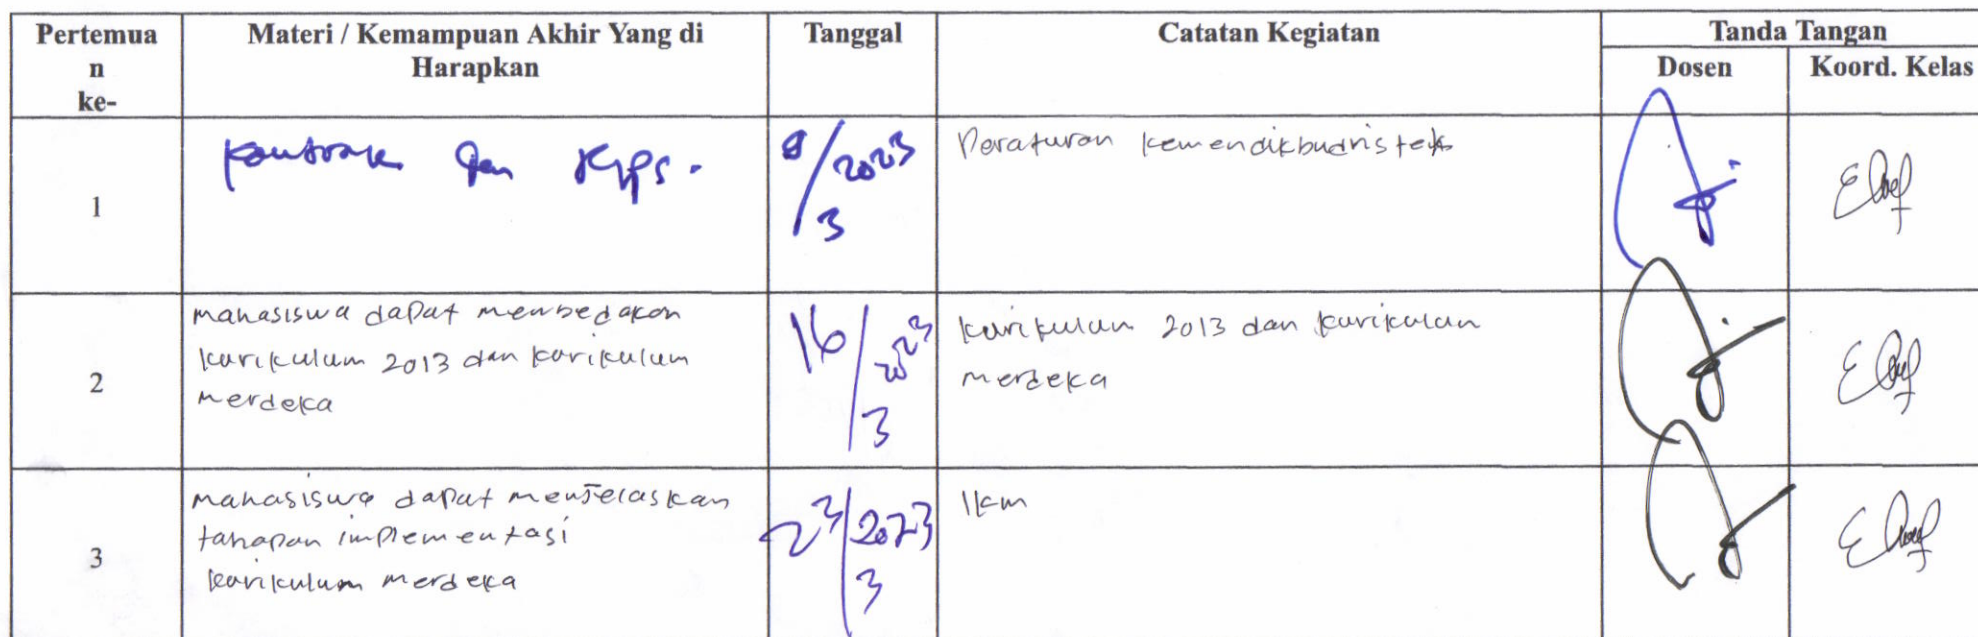 Pertemua
n
ke-
Materi / Kemampuan Akhir Yang di
Harapkan
Tanggal
Catatan Kegiatan
Tanda Tangan
Dosen
Koord. Kelas
1
Kontrak dan
8/2023
3
Peraturan Kemendikbudristek
2
mahasiswa dapat membedakan
kurikulum 2013 dan kurikulum
merdeka
16/2023
3
kurikulum 2013 dan kurikulum
merdeka
3
mahasiswa dapat menjelaskan
tahapan implementasi
kurikulum merdeka
23/2023
3
Ikm